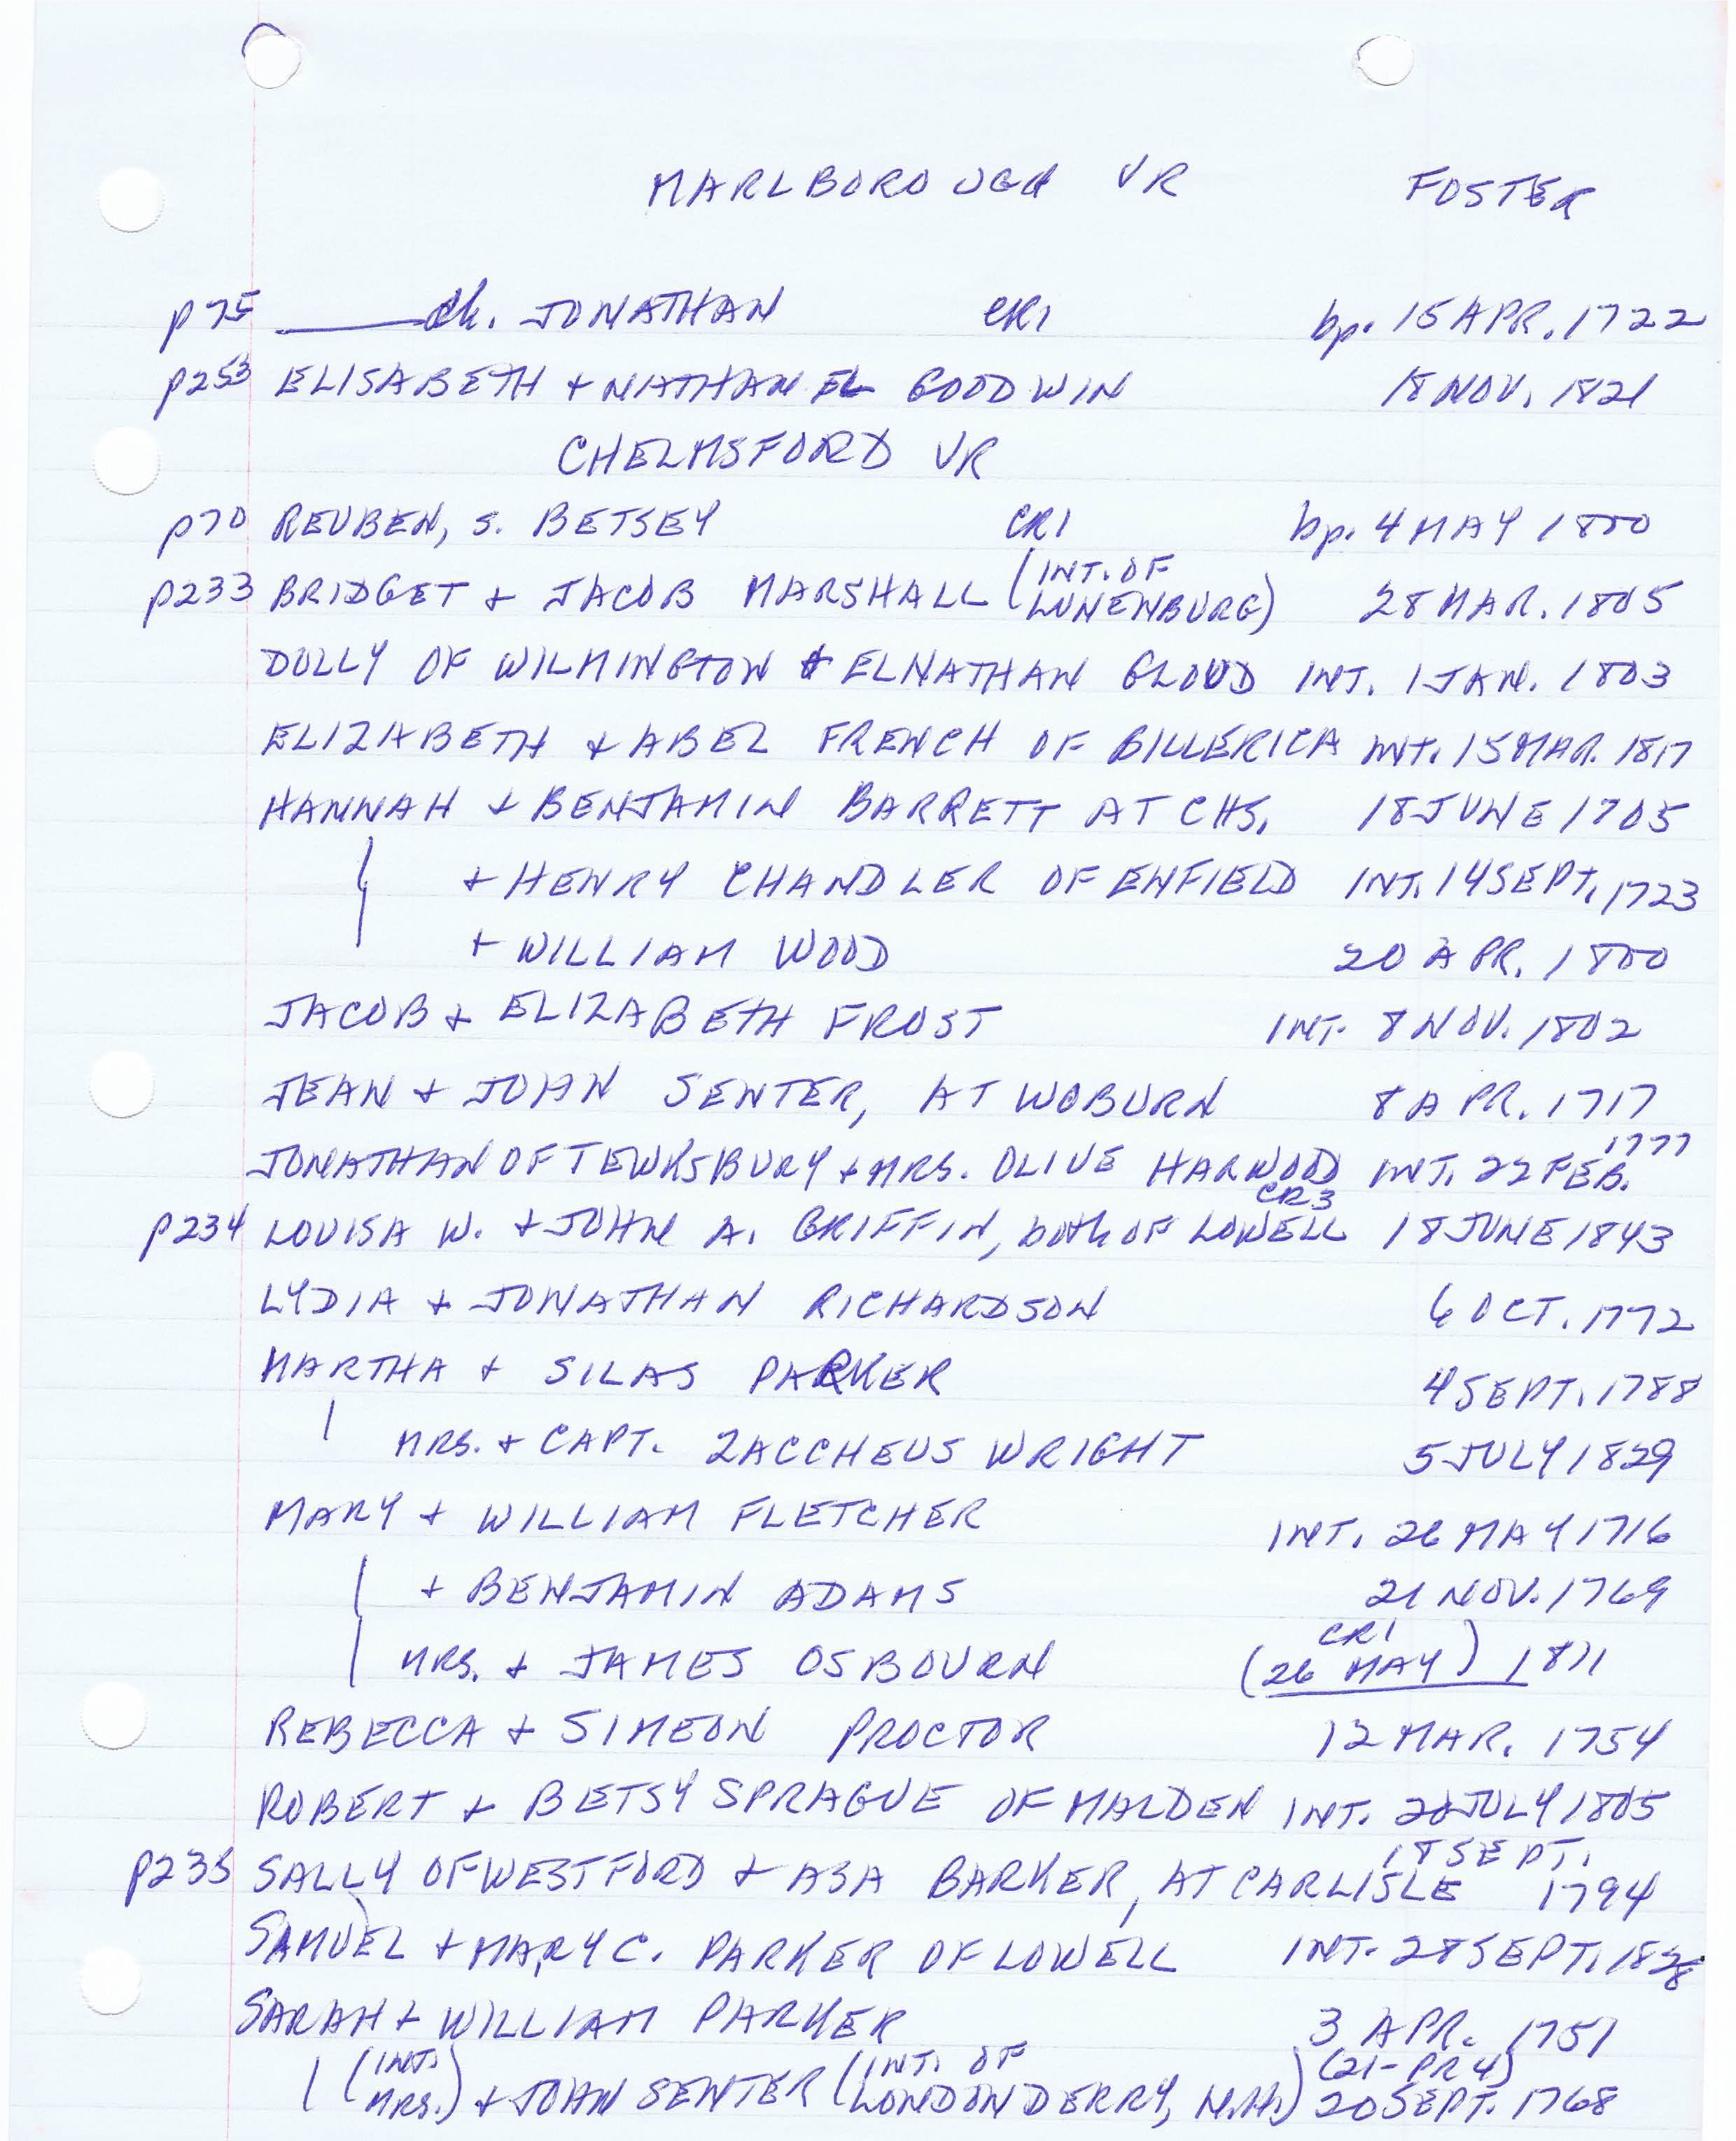 MARLBOROUGH VR FOSTER
p75 ___ ch. JONATHAN CR1 bp. 15 APR. 1722
p253 ELISABETH + NATHANIEL GOODWIN 18 NOV. 1821
CHELMSFORD VR
p70 REUBEN, s. BETSEY CR1 bp. 4 MAY 1800
p233 BRIDGET + JACOB MARSHALL (INT. OF LUNENBURG) 28 MAR. 1805
DOLLY OF WILMINGTON & ELNATHAN GLOUD INT. 1 JAN. 1803
ELIZABETH + ABEL FRENCH OF BILLERICA INT. 15 MAR. 1817
HANNAH + BENJAMIN BARRETT AT CHS. 18 JUNE 1705
+ HENRY CHANDLER OF ENFIELD INT. 14 SEPT. 1723
+ WILLIAM WOOD 20 APR. 1800
JACOB + ELIZABETH FROST INT. 8 NOV. 1802
JEAN + JOHN SENTER, AT WOBURN 8 APR. 1717
JONATHAN OF TEWKSBURY + MRS. OLIVE HARWOOD INT. 22 FEB. 1777
p234 LOUISA W. + JOHN A. GRIFFIN, both OF LOWELL CR3 18 JUNE 1843
LYDIA + JONATHAN RICHARDSON 6 OCT. 1772
MARTHA + SILAS PARKER 4 SEPT. 1788
MRS. + CAPT. ZACCHEUS WRIGHT 5 JULY 1829
MARY + WILLIAM FLETCHER INT. 26 MAY 1716
+ BENJAMIN ADAMS 21 NOV. 1769
MRS. + JAMES OSBOURN CR1 (26 MAY) 1811
REBECCA + SIMEON PROCTOR 12 MAR. 1754
ROBERT + BETSY SPRAGUE OF MALDEN INT. JULY 1805
p235 SALLY OF WESTFORD + ASA BARKER, AT CARLISLE 18 SEPT. 1794
SAMUEL + MARY C. PARKER OF LOWELL INT. 28 SEPT. 1828
SARAH + WILLIAM PARKER 3 APR. 1751
(INT. MRS.) + JOHN SENTER (INT. OF LONDONDERRY, N.H.) (21-PR4) 20 SEPT. 1768